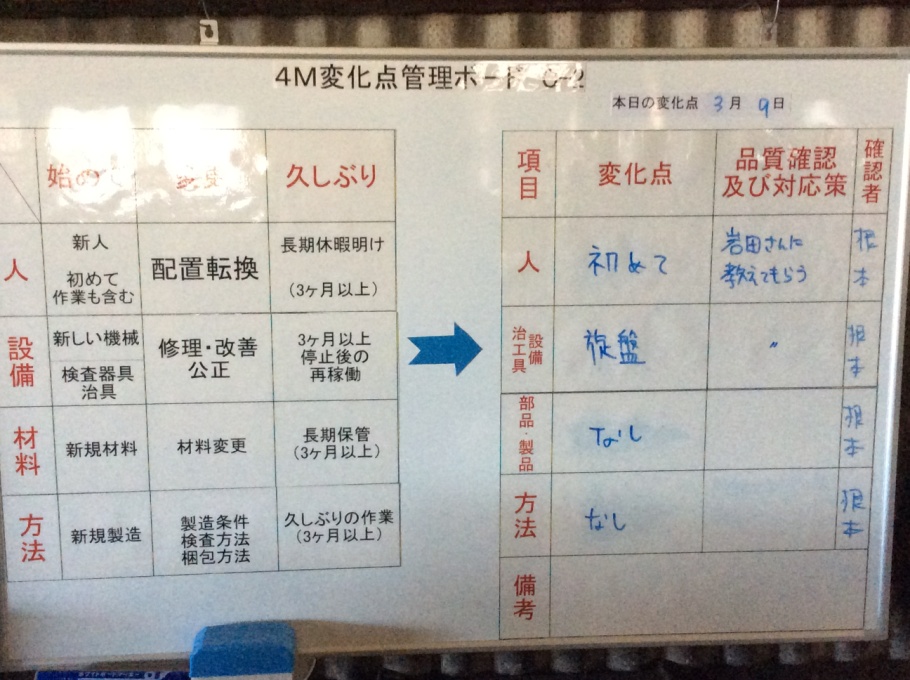 4M変化点管理ボード C-2
本日の変化点 3月 9日
始めて 変更 久しぶり
人
新人
初めて
作業も含む
配置転換
長期休暇明け
(3ヶ月以上)
設備
新しい機械
検査器具
治具
修理・改善
公正
3ヶ月以上
停止後の
再稼働
材料
新規材料
材料変更
長期保管
(3ヶ月以上)
方法
新規製造
製造条件
検査方法
梱包方法
久しぶりの作業
(3ヶ月以上)
項目
変化点
品質確認
及び対応策
確認者
人
初めて
岩田さんに
教えてもらう
根本
設備
治工具
旋盤
〃
根本
部品・製品
なし
根本
方法
なし
根本
備考